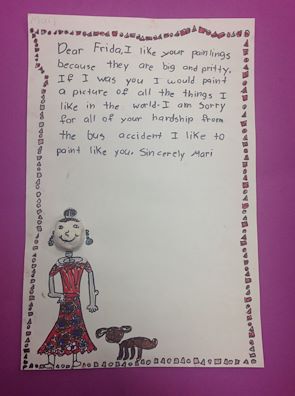 Mari
Dear Frida, I like your paintings
because they are big and pritty.
If I was you I would paint
a picture of all the things I
like in the world. I am sorry
for all of your hardship from
the bus accident I like to
paint like you. Sincerely Mari